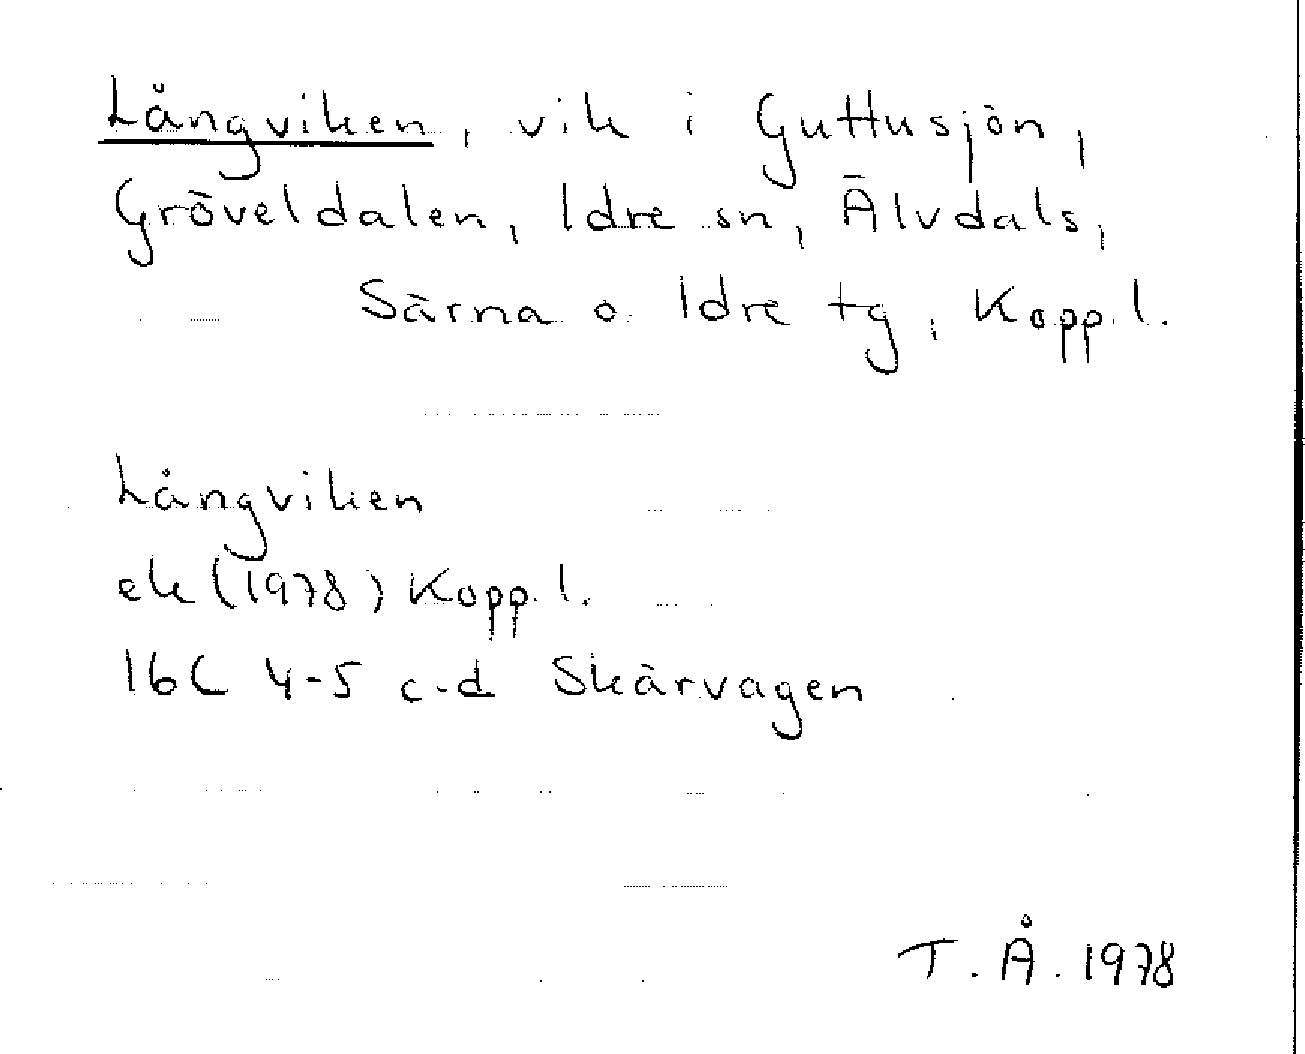 Långviken, vik i Guttusjön,
Gröveldalen, Idre sn, Älvdals,
Särna o. Idre tg, Kopp. l.
Långviken
ek (1978) Kopp. l.
16C 4-5 c-d Skärvagen
T. Å. 1978